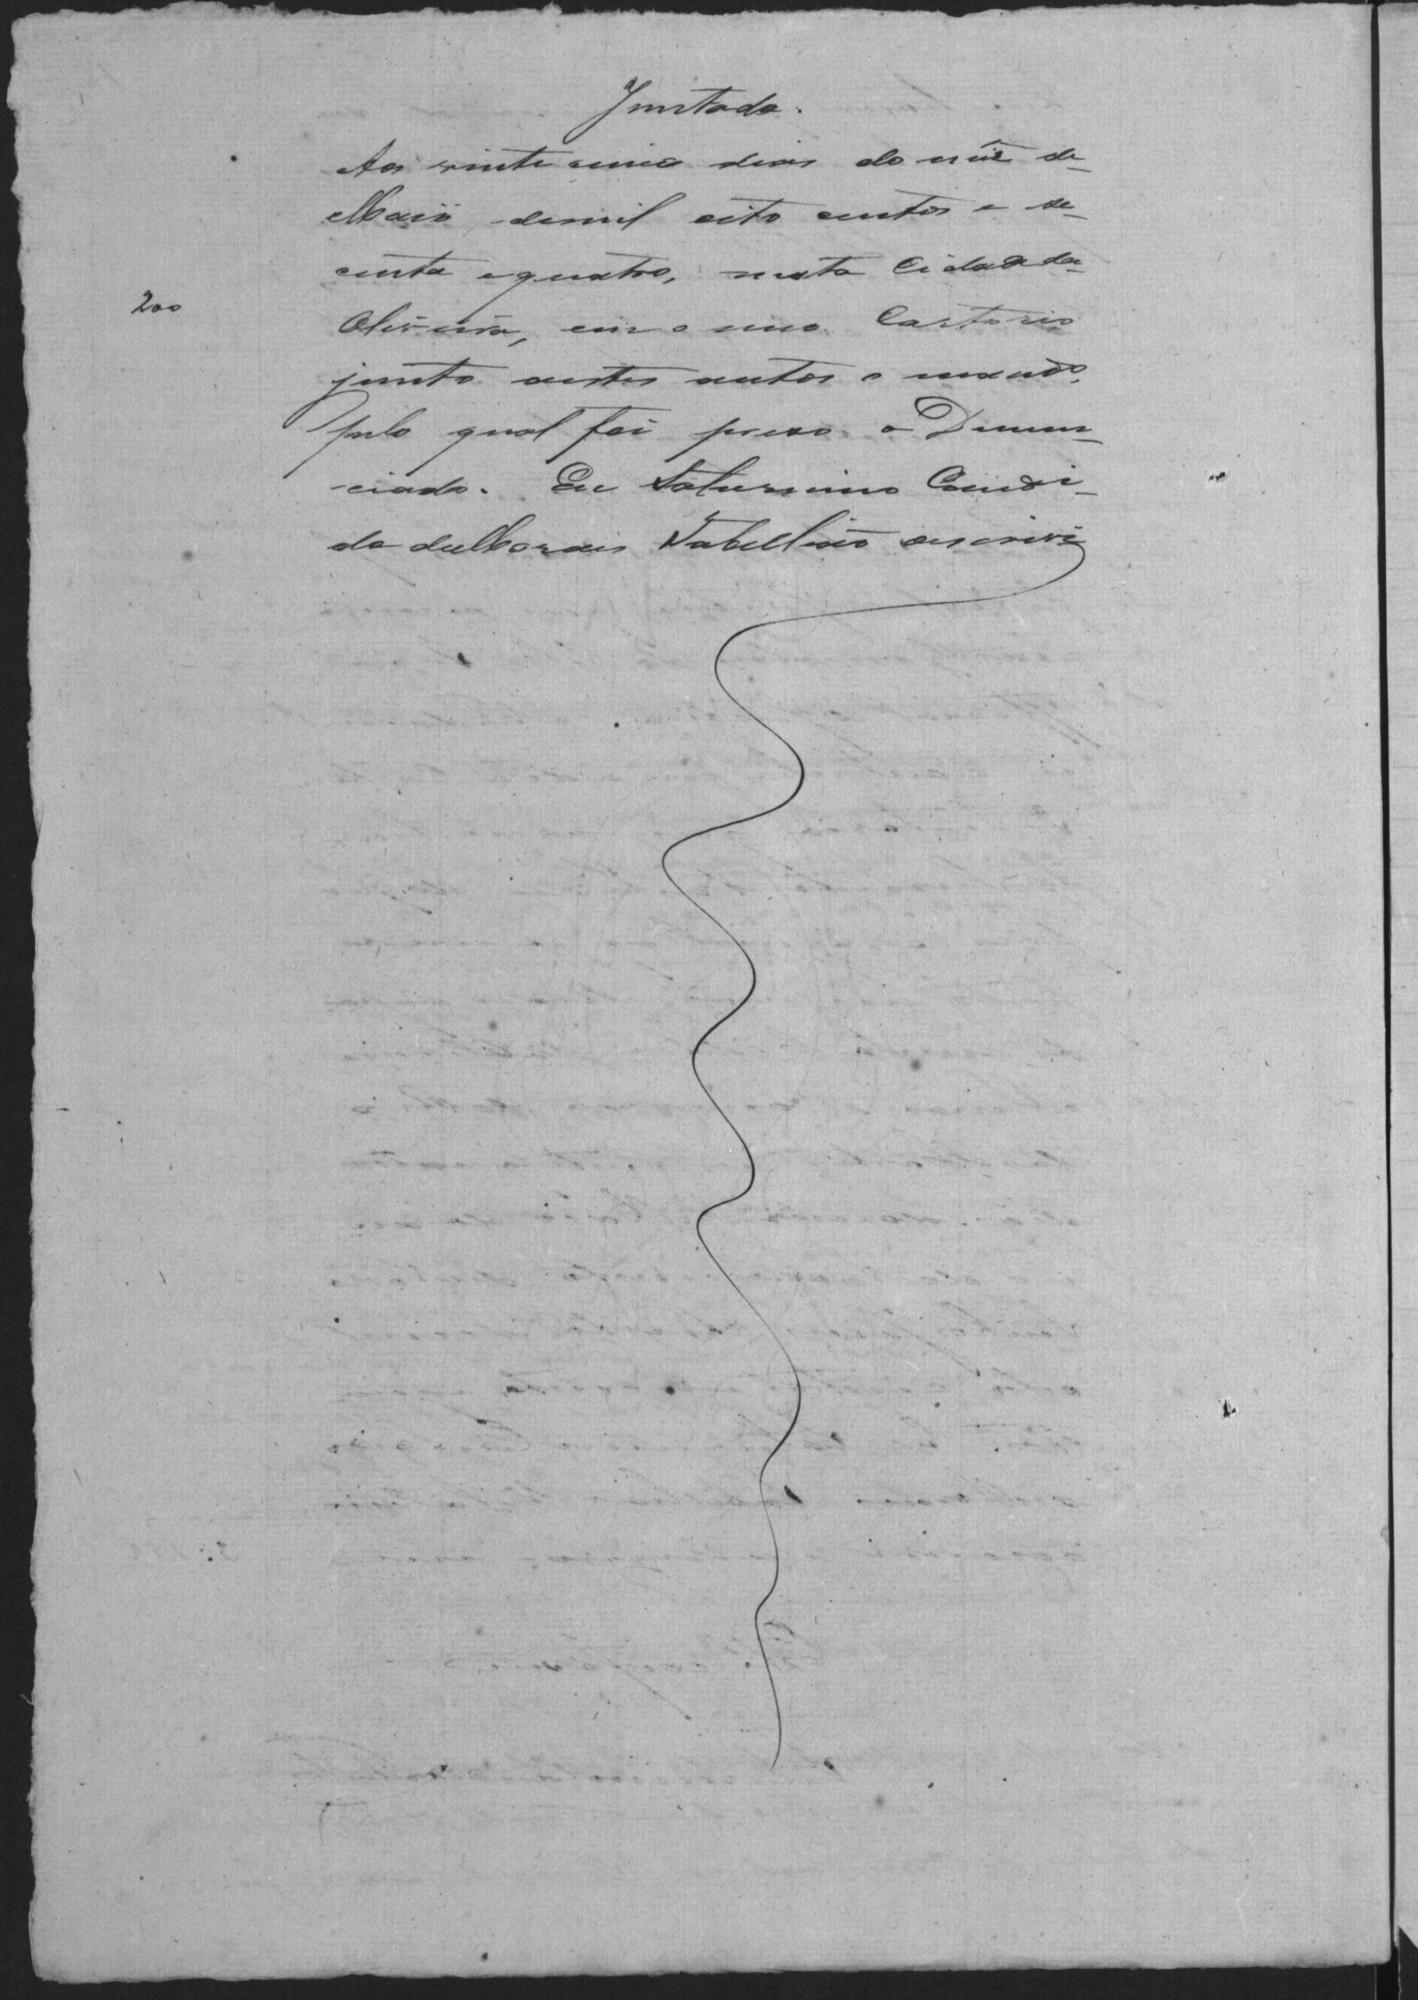 Juntada.
Aos vinte cinco dias do mêz de
Maio demil oito centos e se-
centa equatro, nesta Cidade da
200
Oliveira, em o meo Cartorio
junto aestes autos o mando.
pelo qual foi prezo o Denun-
ciado. Eu Saturnino Candi-
do deMoraes Tabellião oescrivi